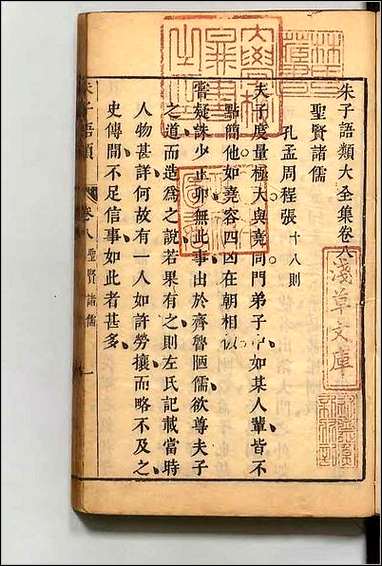 朱子語類大全集卷八
聖賢諸儒
孔孟周程張 十八則
夫子度量極大與堯同門弟子中如某人輩皆不
點簡他如堯容四凶在朝相似
嘗疑誅少正卯無此事出於齊魯陋儒欲尊夫子
之道而造為之說若果有之則左氏記載當時
人物甚詳何故有一人如許勞攘而略不及之
史傳間不足信事如此者甚多
朱子語類
卷八
聖賢諸儒
一
淺草文庫